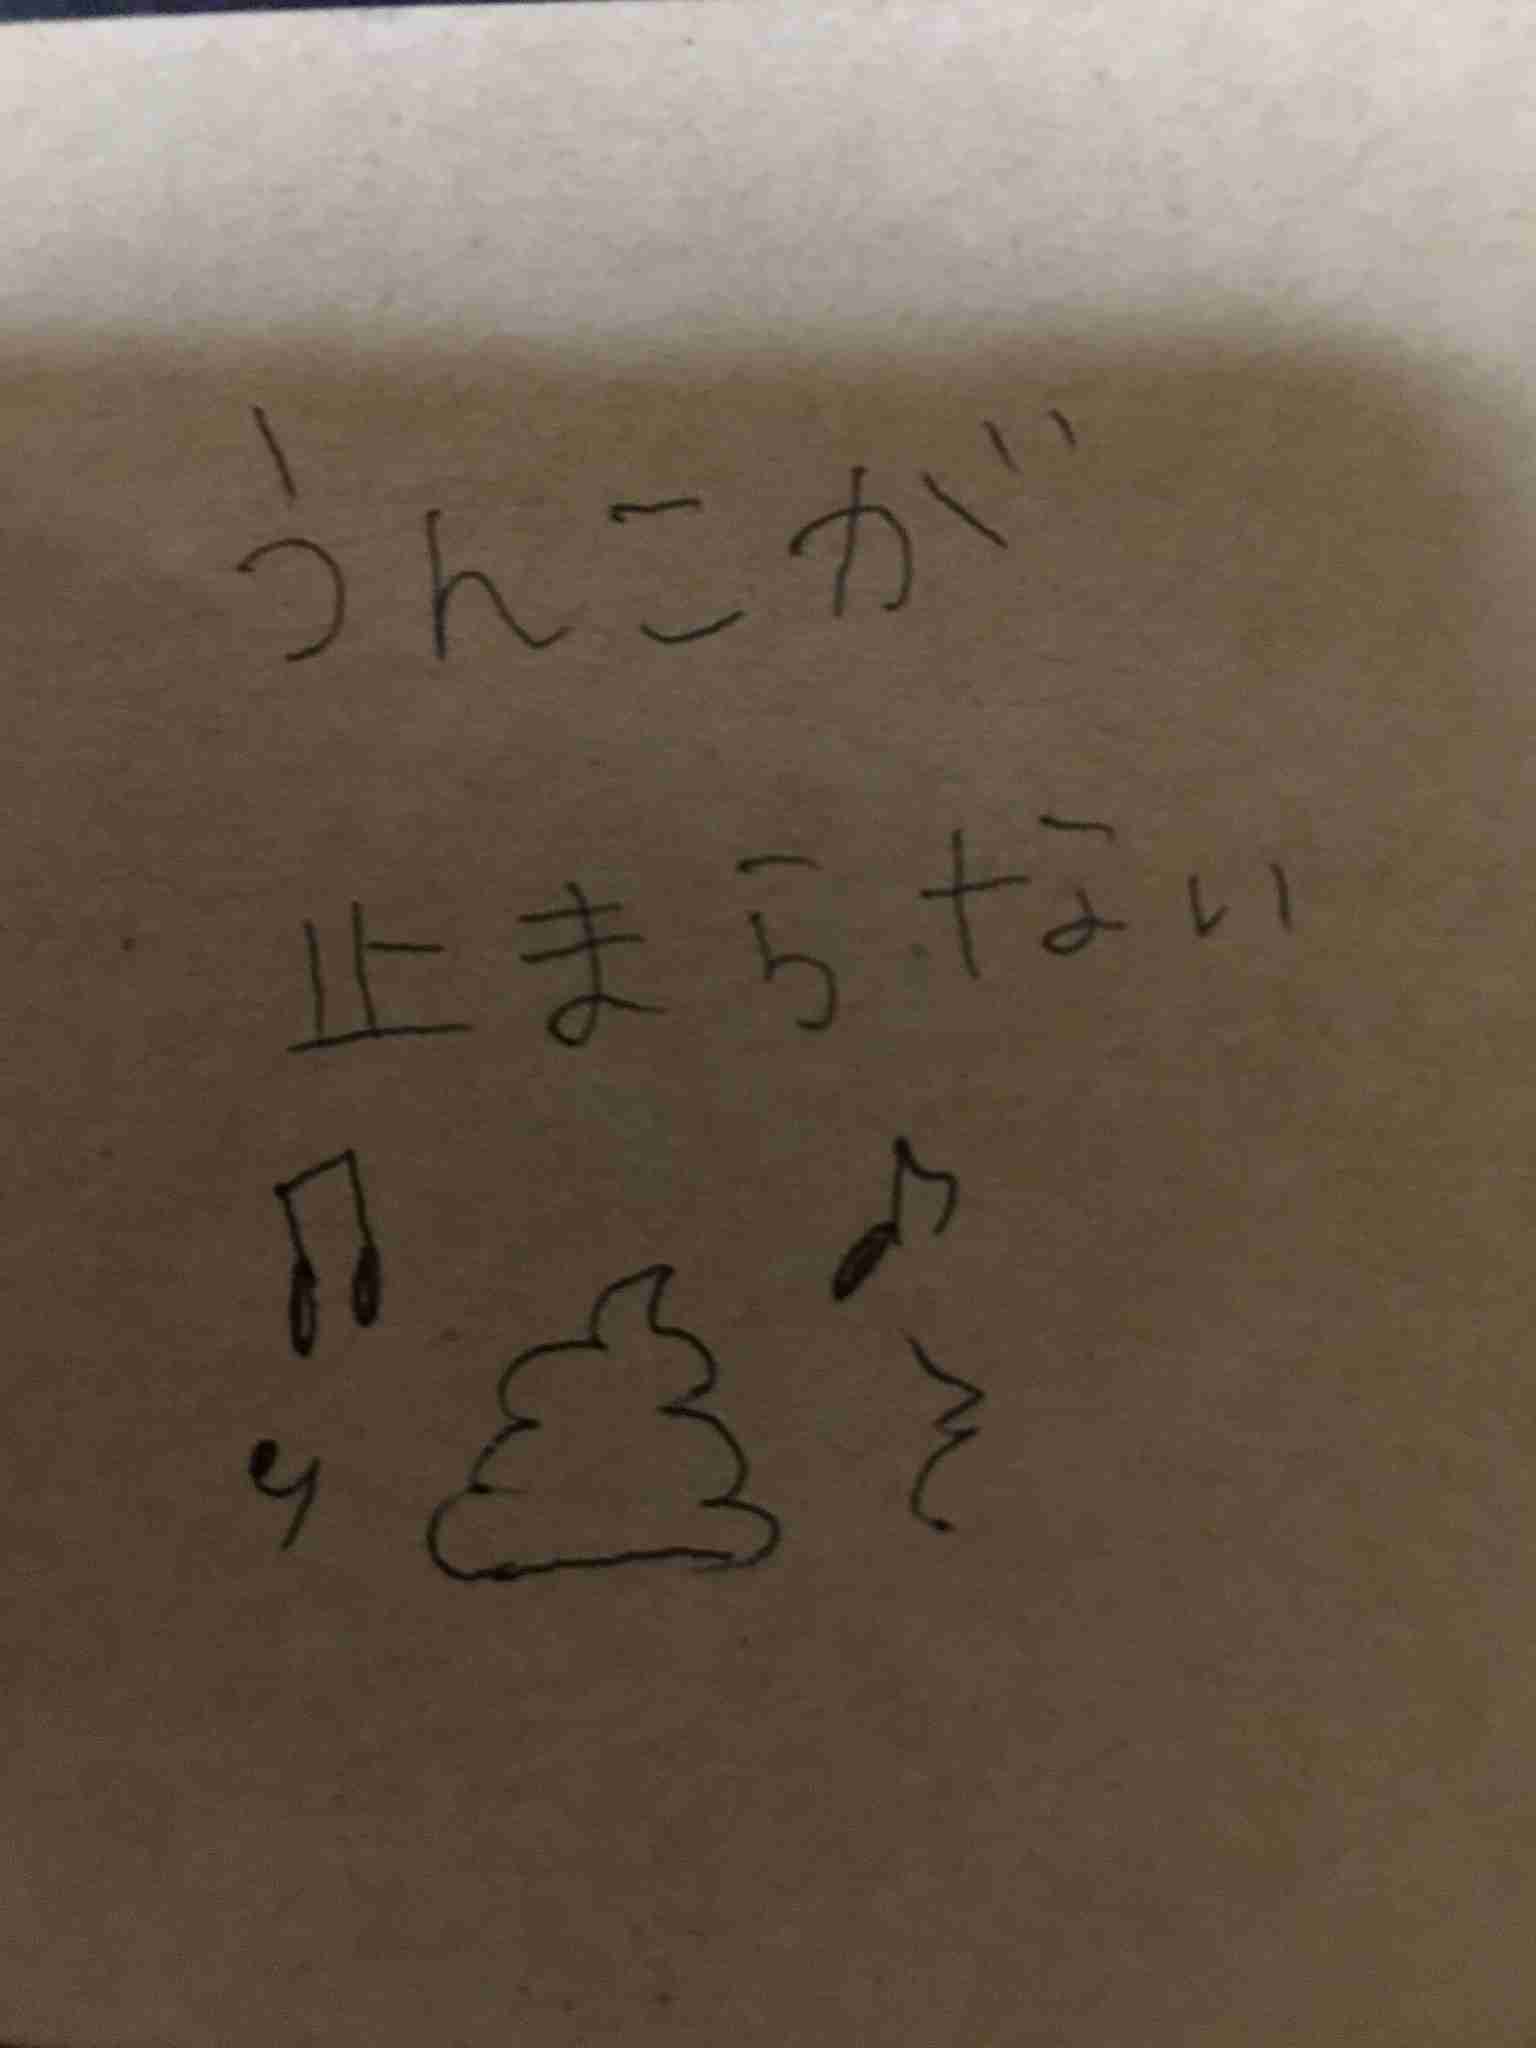 うんこが
止まらない